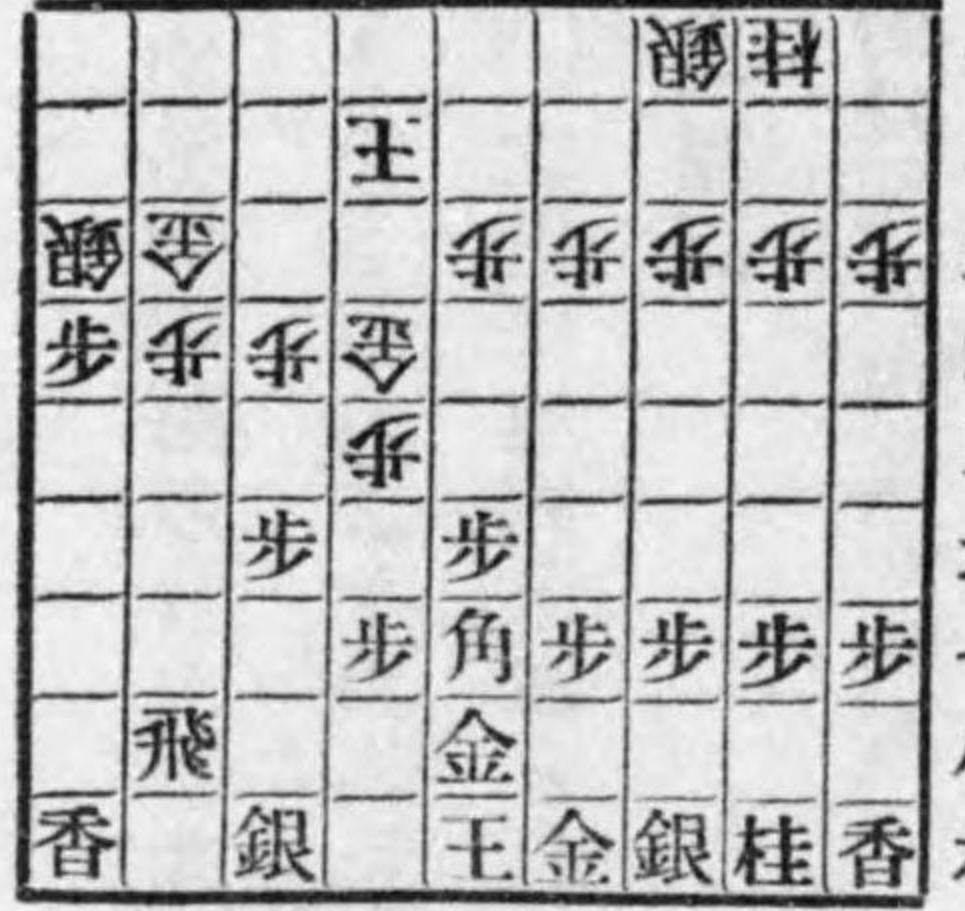 銀桂
王
銀金歩歩歩歩歩
歩歩歩金
歩
歩歩
歩角歩歩歩歩
飛金
香銀王金銀桂香